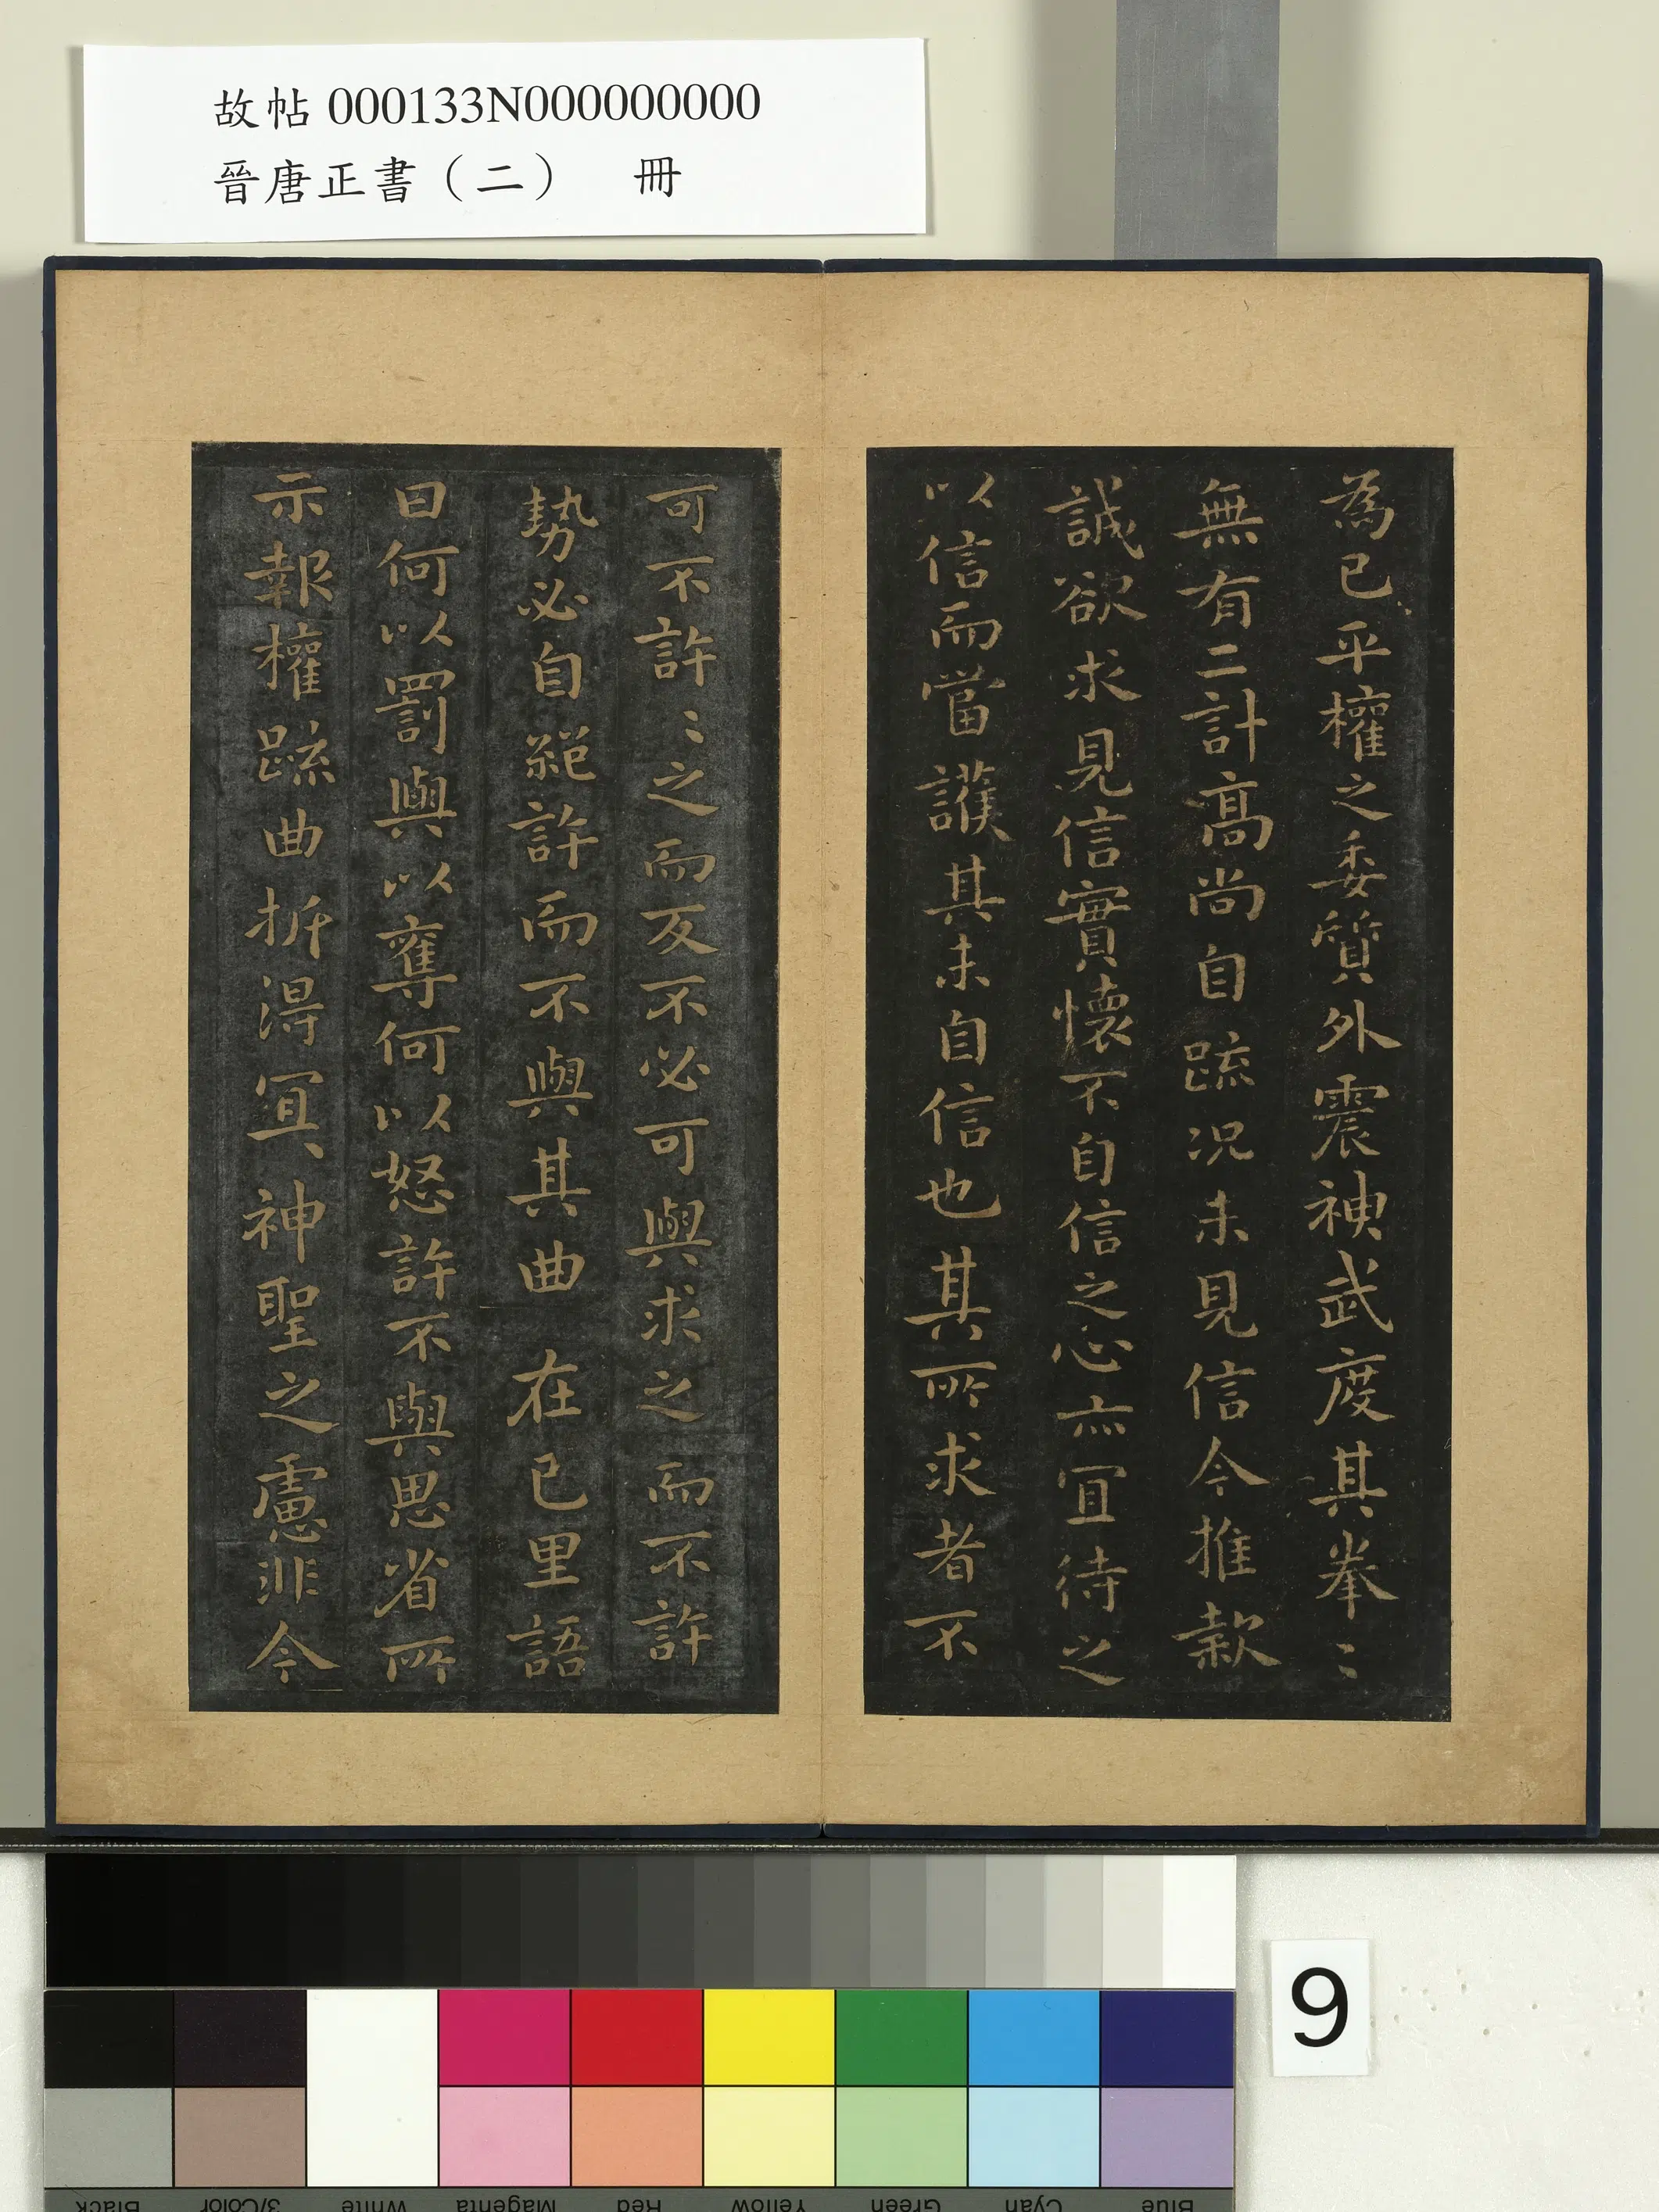 故帖 000133N000000000
晉唐正書（二）　冊
為已平權之委質外震神武度其拳〻
無有二計高尚自疏況未見信今推款
誠欲求見信實懷不自信之心亦宜待之
以信而當護其未自信也其所求者不
可不許〻之而反不必可與求之而不許
勢必自絕許而不與其曲在己里語
曰何以罰與以奪何以怒許不與思省所
示報權疏曲折得宜神聖之慮非今
9
Black
3/Color
White
Magenta
Red
Yellow
Green
Cyan
Blue